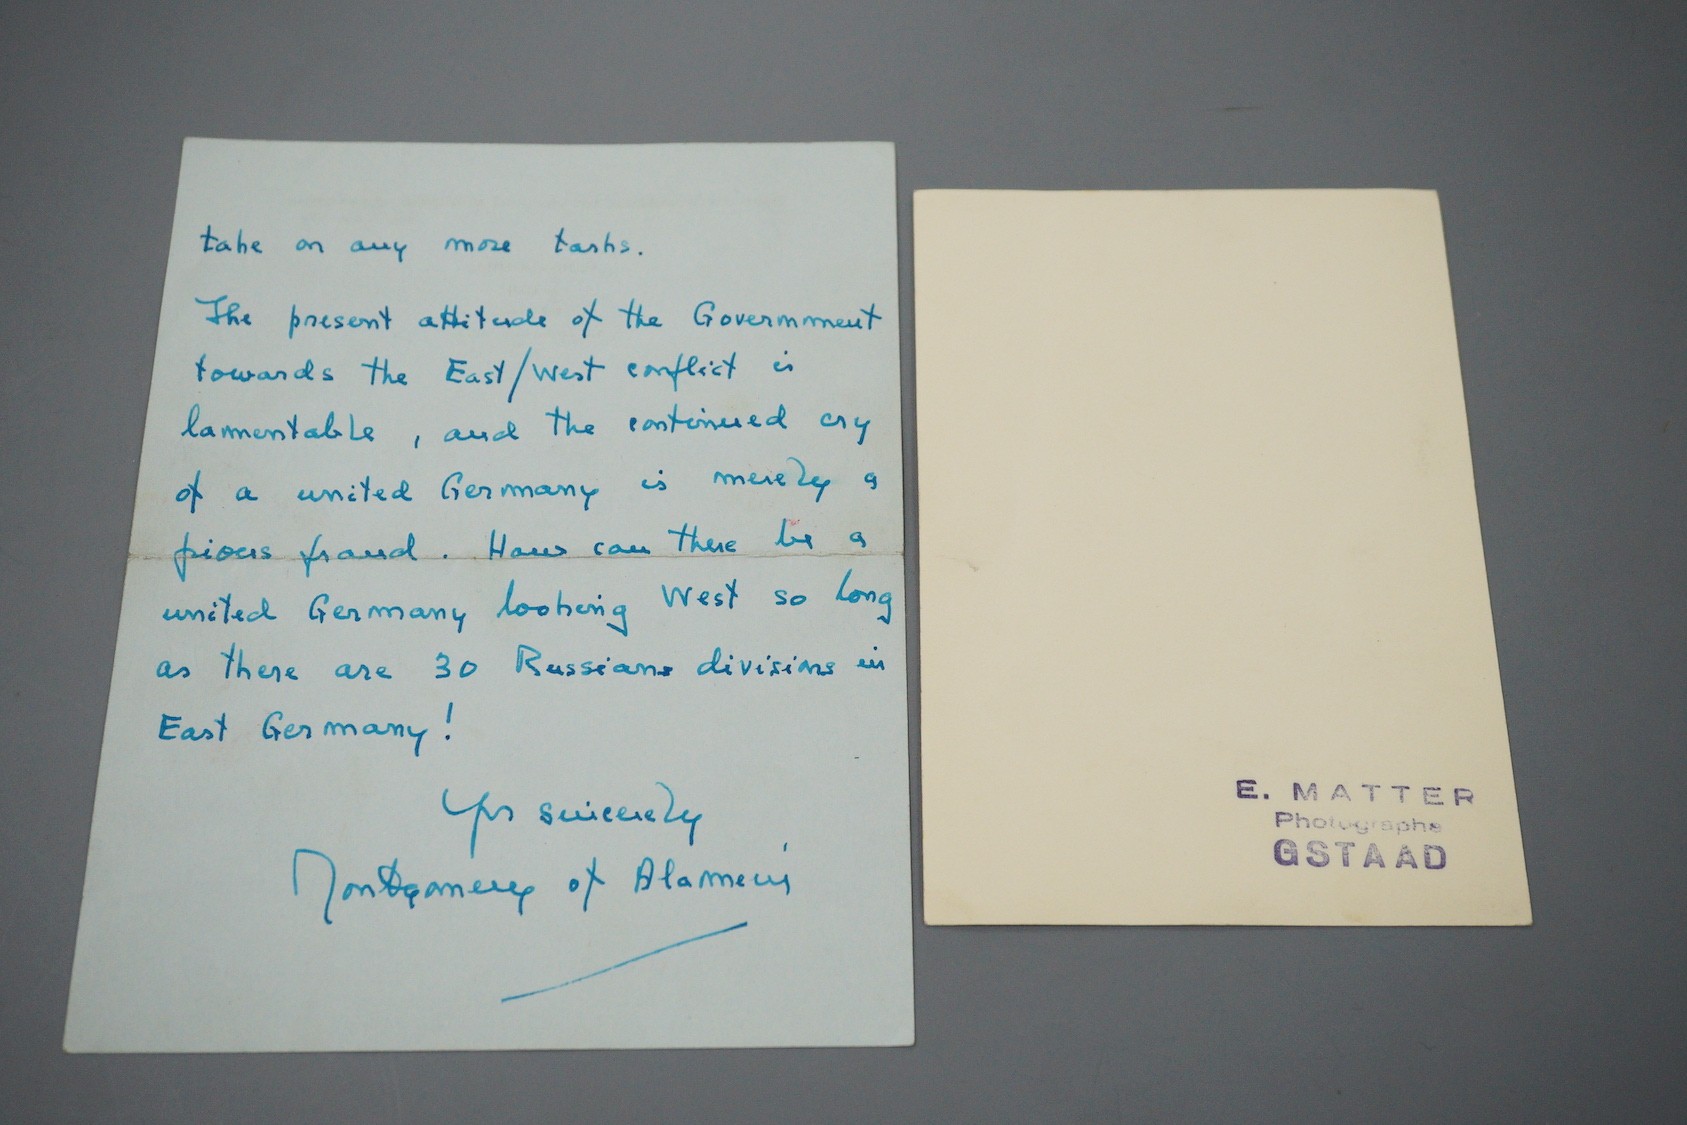 take on any more tasks.
The present attitude of the Government
towards the East/West conflict is
lamentable, and the continued cry
of a united Germany is merely a
pious fraud. How can there be a
united Germany looking West so long
as there are 30 Russians divisions in
East Germany!
Yrs sincerely
Montgomery of Alamein
E. MATTER
Photographe
GSTAAD